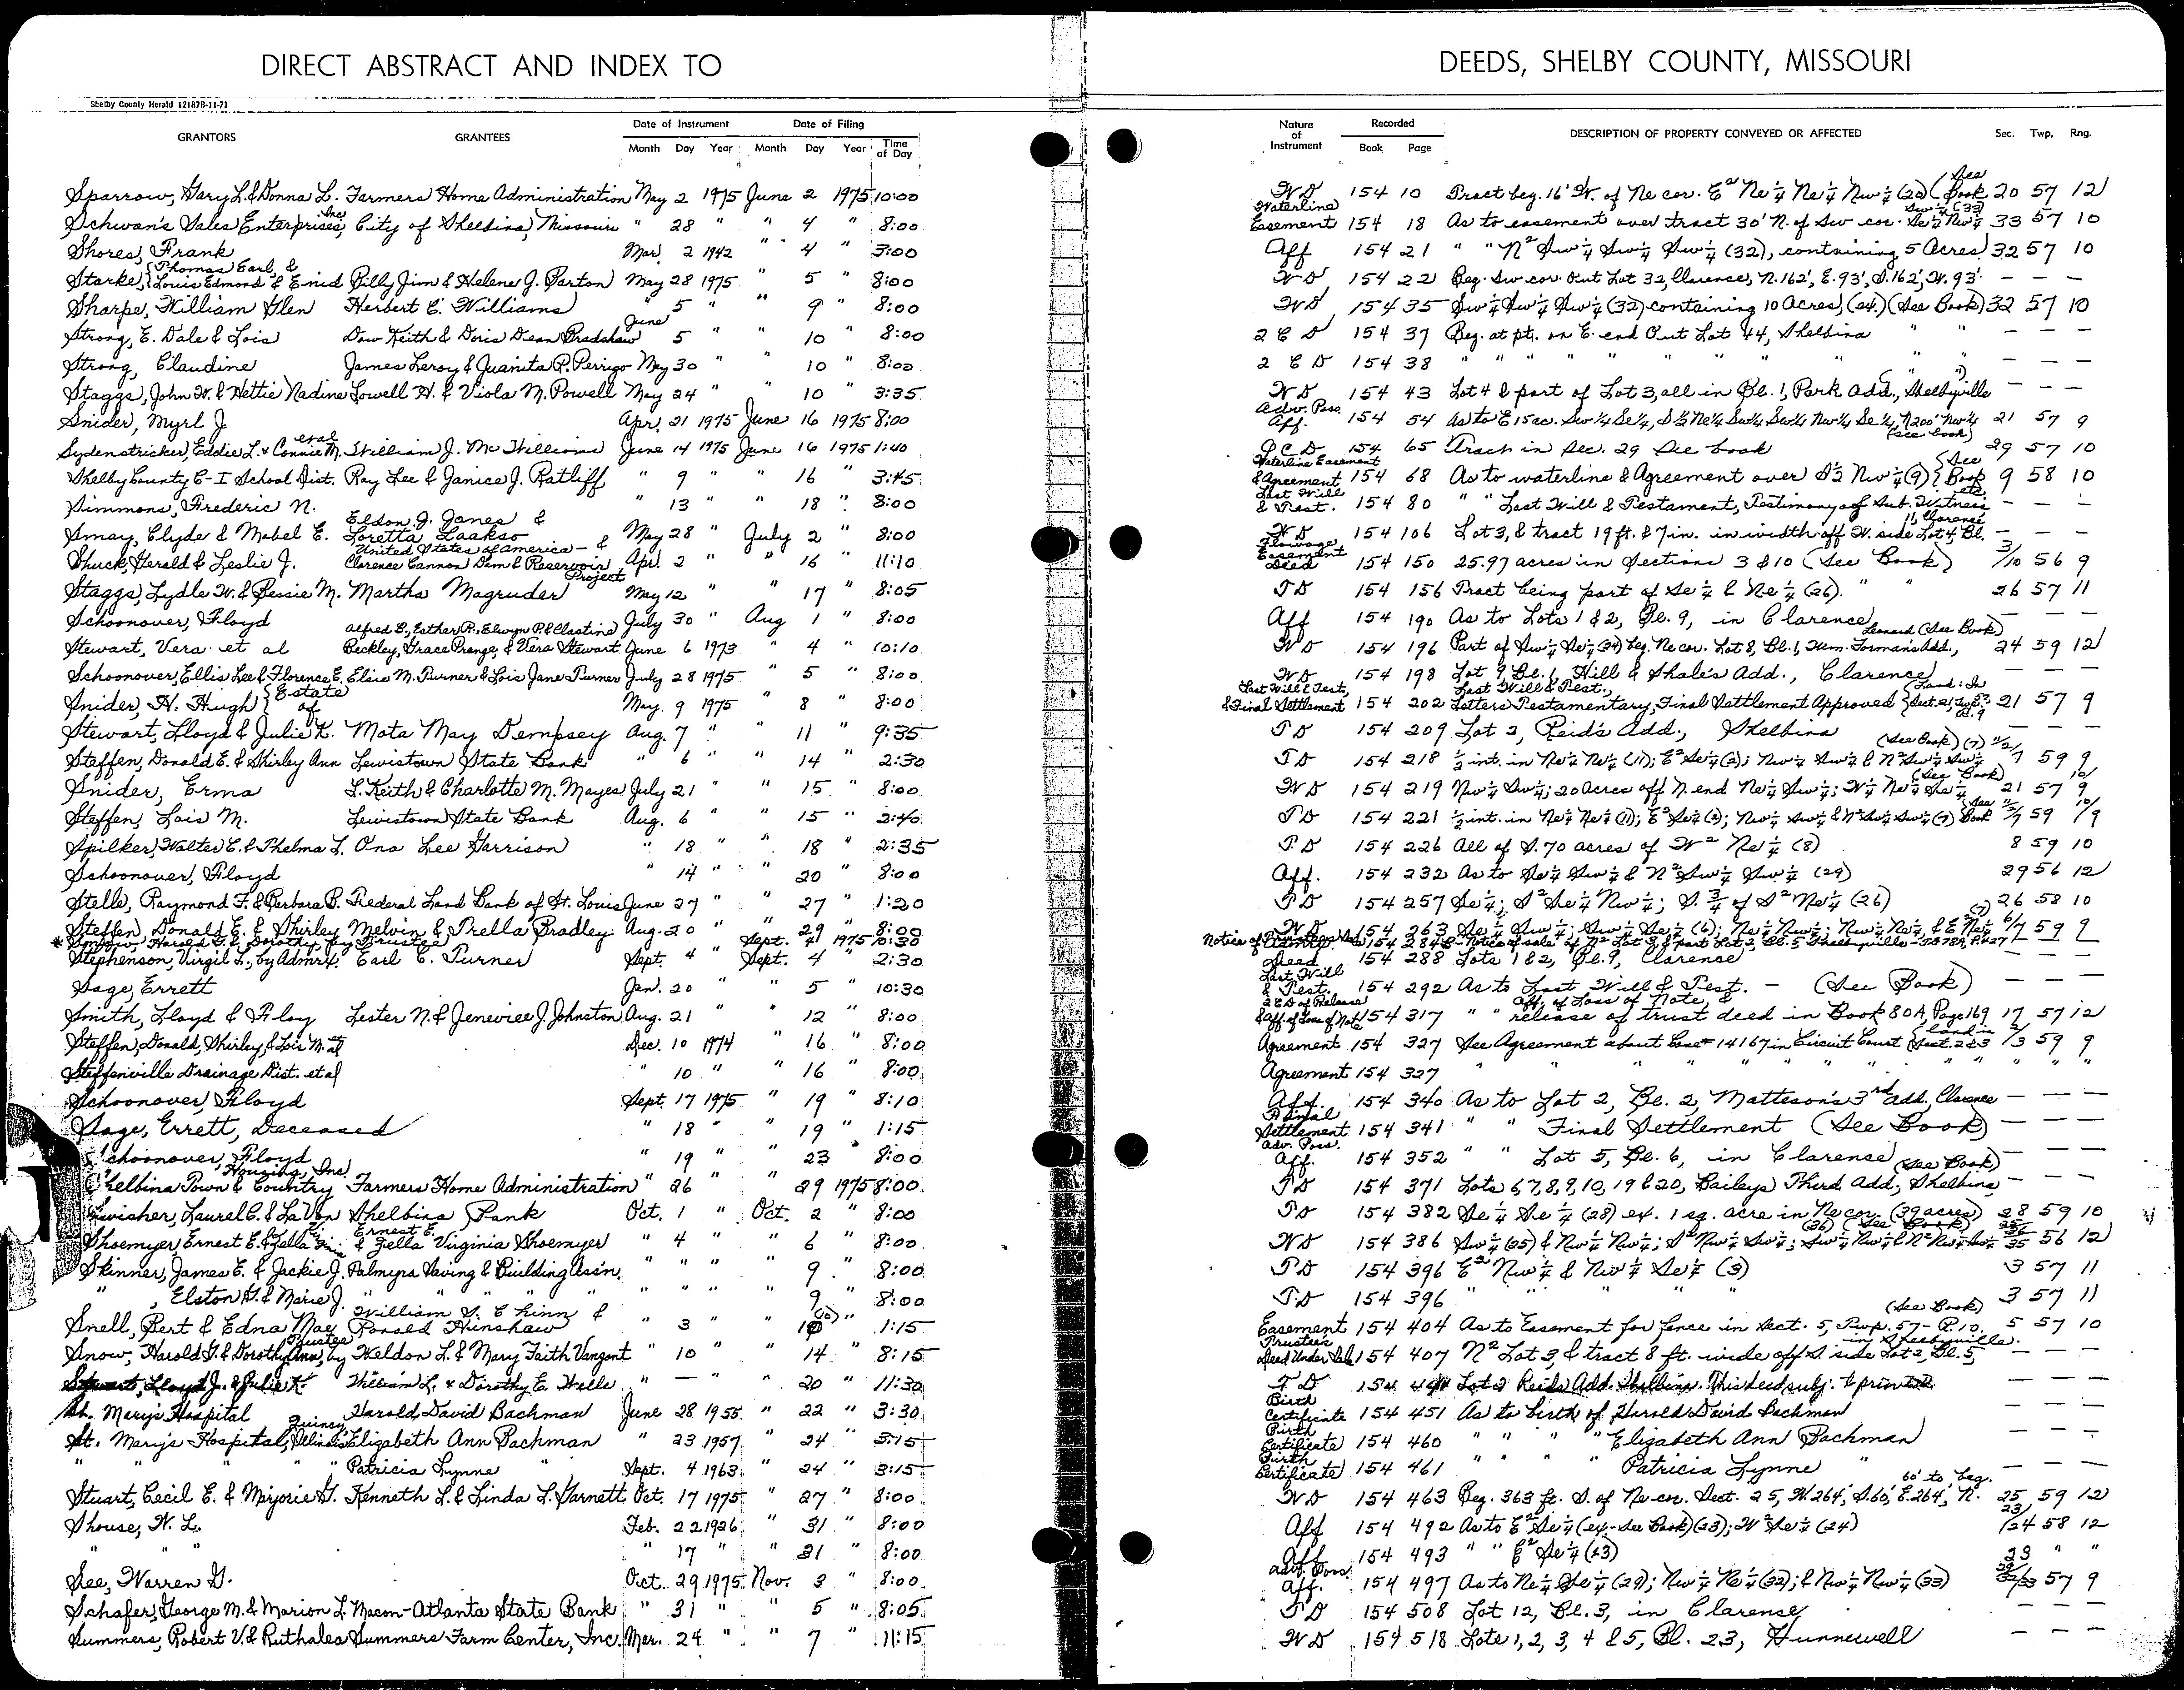 DIRECT ABSTRACT AND INDEX TO DEEDS, SHELBY COUNTY, MISSOURI
Shelby County Herald 12187B-11-71
GRANTORS GRANTEES Date of Instrument Month Day Year Date of Filing Month Day Year Time of Day Nature of Instrument Recorded Book Page DESCRIPTION OF PROPERTY CONVEYED OR AFFECTED Sec. Twp. Rng.
Sparrow, Gary L. & Donna L. Farmers Home Administration May 2 1975 June 2 1975 10:00 WD 154 10 Tract beg. 16' W. of Ne cor. E2 Ne¼ Ne¼ Nw¼ (20) (See Book 20 57 12
Schwan's Sales Enterprises, Inc. City of Shelbina, Missouri " 28 " " 4 " 8:00 Waterline Easement 154 18 As to easement over tract 30' N. of Sw cor. Se¼ Nw¼ 33 57 10
Shores, Frank Mar. 2 1942 " 4 " 3:00 Aff 154 21 " " N2 Sw¼ Sw¼ Sw¼ (32), containing 5 Acres 32 57 10
Starke, {Thomas Earl, & Louis Edmond & Enid Billy Jim & Helene J. Barton May 28 1975 " 5 " 8:00 WD 154 22 Beg. Sw cor. Out Lot 32, Clarence, N. 162', E. 93', S. 162', W. 93' — — —
Sharpe, William Glen Herbert E. Williams 5 " " 9 " 8:00 WD 154 35 Sw¼ Sw¼ Sw¼ (32) containing 10 Acres, (ex.) (See Book) 32 57 10
Strong, E. Dale & Lois Dow Keith & Doris Dean Bradshaw June 5 " " 10 " 8:00 2 E D 154 37 Beg. at pt. on E. end Out Lot 44, Shelbina — — —
Strong, Claudine James Leroy & Juanita P. Perrigo May 30 " " 10 " 8:00 2 E D 154 38 " " " " " " " " " — — —
Staggs, John W. & Hettie Nadine Lowell H. & Viola M. Powell May 24 " " 10 3:35 WD 154 43 Lot 4 & part of Lot 3, all in Bl. 1, Park Add., Shelbyville — — —
Snider, Myrl J Apr. 21 1975 June 16 1975 8:00 Adv. Poss. Aff. 154 54 As to E 15 ac. Sw¼ Se¼, S½ Ne¼ Sw¼ Nw¼ Se¼, N 200' Nw¼ (See book) 21 57 9
Sydenstricker, Eddie L. & Connie M. et al William J. Mc Williams June 14 1975 June 16 1975 1:40 Q C D 154 65 Tract in Sec. 29 See book 29 57 10
Shelby County C-I School Dist. Roy Lee & Janice J. Ratliff " 9 " " 16 " 3:45 Waterline Easement & Agreement 154 68 As to waterline & Agreement over S½ Nw¼ (9) {See Book 9 58 10
Simmons, Frederic N. " 13 " " 18 " 8:00 Last Will & Test. 154 80 " " Last Will & Testament, Testimony of Sub. Witness — — —
Amay, Clyde & Mabel E. Eldon J. Jones & Loretta Laakso May 28 " July 2 " 8:00 WD 154 106 Lot 3, & tract 19 ft. & 7 in. in width off W. side Lot 4, Bl. 11, Clarence — — —
Shuck, Gerald & Leslie J. United States of America – & Clarence Cannon Dam & Reservoir Project Apr. 2 " " 16 11:10 Flowage Easement Deed 154 150 25.97 acres in Sections 3 & 10 (See Book) 3/10 56 9
Staggs, Lydle W. & Bessie M. Martha Magruder May 12 " 17 " 8:05 T D 154 156 Tract being part of Se¼ & Ne¼ (26). 26 57 11
Schoonover, Floyd July 30 " Aug 1 " 8:00 Aff 154 190 As to Lots 1 & 2, Bl. 9, in Clarence — — —
Stewart, Vera et al Alfred B., Esther R., Elwyn P. & Clastine Beckley, Grace Prange, & Vera Stewart June 6 1973 " 4 " 10:10 WD 154 196 Part of Sw¼ Se¼ (24) beg. Ne cor. Lot 8, Bl. 1, Wm. Forman's Add., Leonard (See Book) 24 59 12
Schoonover, Ellis Lee & Florence E. Elsie M. Turner & Lois Jane Turner July 28 1975 " 5 " 8:00 WD 154 198 Lot 9, Bl. 6, Hill & Shale's Add., Clarence — — —
Snider, H. Hugh {Estate of May 9 1975 " 8 " 8:00 Last Will & Test. & Final Settlement 154 202 Last Will & Test., Letters Testamentary, Final Settlement Approved {Land in Sect. 21, Twp. 57 R. 9 21 57 9
Stewart, Lloyd & Julie K. Mota May Dempsey Aug. 7 " " 11 " 9:35 T D 154 209 Lot 2, Reid's Add., Shelbina — — —
Steffen, Donald E. & Shirley Ann Lewistown State Bank " 6 " " 14 " 2:30 T D 154 218 ½ int. in Ne¼ Ne¼ (11); E2 Se¼ (2); Nw¼ Sw¼ & N2 Sw¼ Sw¼ (See Book) (7) 59 9
Snider, Erma L. Keith & Charlotte M. Mayes July 21 " " 15 " 8:00 WD 154 219 Nw¼ Sw¼; 20 acres off N. end Ne¼ Sw¼; W½ Ne¼ Se¼ (See Book) 21 57 9
Steffen, Lois M. Lewistown State Bank Aug. 6 " " 15 " 2:40 T D 154 221 ½ int. in Ne¼ Ne¼ (11); E2 Se¼ (2); Nw¼ Sw¼ & N2 Sw¼ Sw¼ (7) See Book 59 9
Spilker, Walter E. & Thelma L. Ona Lee Garrison " 18 " " 18 " 2:35 T D 154 226 All of S. 70 acres of W2 Ne¼ (8) 8 59 10
Schoonover, Floyd " 14 " " 20 " 8:00 Aff. 154 232 As to Se¼ Sw¼ & N2 Sw¼ Sw¼ (29) 29 56 12
Stelle, Raymond F. & Barbara B. Federal Land Bank of St. Louis June 27 " " 27 " 1:20 T D 154 257 Se¼; S2 Se¼ Nw¼; S. ¾ of S2 Ne¼ (26) 26 58 10
Steffen, Donald E. & Shirley Melvin & Trella Bradley Aug. 20 " " 29 " 8:00 WD 154 263 Se¼ Sw¼; Sw¼ Se¼ (6); Ne¼ Nw¼; Nw¼ Ne¼, & E2 Ne¼ (7) 6/7 59 9
* Snow, Harold G. & Dorothy by Trustee Sept. 4 1975 10:30 Notice of 154 284 Notice of sale of N2 Lot 3 & part Lot 2, Bl. 5 Shelbyville
Stephenson, Virgil L., by Admrx. Earl E. Turner Sept. 4 " Sept. 4 " 2:30 Deed 154 288 Lots 1 & 2, Bl. 9, Clarence — — —
Sage, Errett Jan. 20 " " 5 " 10:30 Last Will & Test. 154 292 As to Last Will & Test. – (See Book) — — —
Smith, Lloyd & Floy Lester N. & Jeneviee J. Johnston Aug. 21 " " 12 " 8:00 2 E D of Release & Aff. of Loss of Note 154 317 " " Aff. of Loss of Note, & release of trust deed in Book 80A, Page 169 17 57 12
Steffen, Donald, Shirley, & Lois M. et al Dec. 10 1974 " 16 " 8:00 Agreement 154 327 See Agreement about Case# 14167 in Circuit Court {Land in Sect. 2 & 3 2/3 59 9
Steffenville Drainage Dist. et al " 10 " " 16 " 8:00 Agreement 154 327 " " " " " " " " "
Schoonover, Floyd Sept. 17 1975 " 19 " 8:10 Aff. 154 340 As to Lot 2, Bl. 2, Matteson's 3rd Add, Clarence — — —
Sage, Errett, Deceased " 18 " " 19 " 1:15 Final Settlement 154 341 " " Final Settlement (See Book) — — —
Schoonover, Floyd " 19 " " 23 " 8:00 Adv. Poss. Aff. 154 352 " " Lot 5, Bl. 6, in Clarence (See Book) — — —
Shelbina Town & Country Housing, Inc. Farmers Home Administration " 26 " " 29 1975 8:00 T D 154 371 Lots 6, 7, 8, 9, 10, 19 & 20, Baileys Third Add, Shelbina — — —
Swisher, Laurel C. & La Von Shelbina Bank Oct. 1 " Oct. 2 " 8:00 T D 154 382 Se¼ Se¼ (28) ex. 1 sq. acre in Ne cor. (39 acres) 28 59 10
Shoemyer, Ernest E. & Zella Virginia Ernest E. & Zella Virginia Shoemyer " 4 " " 6 " 8:00 WD 154 386 Sw¼ (25) & Nw¼ Nw¼; S2 Nw¼ Sw¼; Sw¼ Nw¼ & N2 Nw¼ Sw¼ (36) (See Book) 56 12
Skinner, James E. & Jackie J. Palmyra Saving & Building Ass'n. " " " " 9 " 8:00 T D 154 396 E2 Nw¼ & Nw¼ Se¼ (3) 3 57 11
" , Elston G. & Marie J. " " " " " " " " 9 " 8:00 T D 154 396 " " " " 3 57 11
Snell, Bert & Edna Mae William S. & Ronald Hinshaw " 3 " " 10 (10) " 1:15 Easement 154 404 As to Easement for fence in Sect. 5, Twp. 57 – R. 10. (See Book) 5 57 10
Snow, Harold G. & Dorothy Ann, by Trustee Weldon L. & Mary Faith Vangont " 10 " " 14 " 8:15 Trustee's Deed Under Sale 154 407 N2 Lot 3, & tract 8 ft. wide off S. side Lot 2, Bl. 5, in Shelbyville. — — —
Stewart, Lloyd J. & Julie K. William L. & Dorothy E. Wells " — " " 20 " 11:30 T D 154 Lot 2 Reids Add. Shelbina. This deed subj. to prior — — —
St. Mary's Hospital Harold David Bachman June 28 1955 " 22 " 3:30 Birth Certificate 154 451 As to birth of Harold David Bachman — — —
St. Mary's Hospital, Quincy, Illinois Elizabeth Ann Bachman " 23 1957 " 24 " 3:15 Birth Certificate 154 460 " " " " Elizabeth Ann Bachman — — —
" " " " Patricia Lynne " Sept. 4 1963 " 24 " 3:15 Birth Certificate 154 461 " " " " Patricia Lynne " — — —
Stuart, Cecil E. & Marjorie G. Kenneth L. & Linda L. Garnett Oct. 17 1975 " 27 " 8:00 WD 154 463 Beg. 363 ft. S. of Ne cor. Sect. 25, W. 264', S. 60', E. 264', N. 60' to beg. 25 59 12
Shouse, W. L. Feb. 22 1926 " 31 " 8:00 Aff 154 492 As to E2 Se¼ (ex – See Book) (23); W2 Se¼ (24) 23/24 58 12
" " " " 17 " " 31 " 8:00 Aff. 154 493 " " E2 Se¼ (23) 23 " "
See, Warren G. Oct. 29 1975 Nov. 3 " 8:00 Adv. Poss. Aff. 154 497 As to Ne¼ Se¼ (29); Nw¼ Ne¼ (32); & Nw¼ Nw¼ (33) 57 9
Schafer, George M. & Marion L. Macon-Atlanta State Bank " 31 " " 5 " 8:05 T D 154 508 Lot 12, Bl. 3, in Clarence — — —
Summers, Robert V. & Ruthalea Summers Farm Center, Inc. Mar. 24 " " 7 " 11:15 WD 154 518 Lots 1, 2, 3, 4 & 5, Bl. 23, Hunnewell — — —